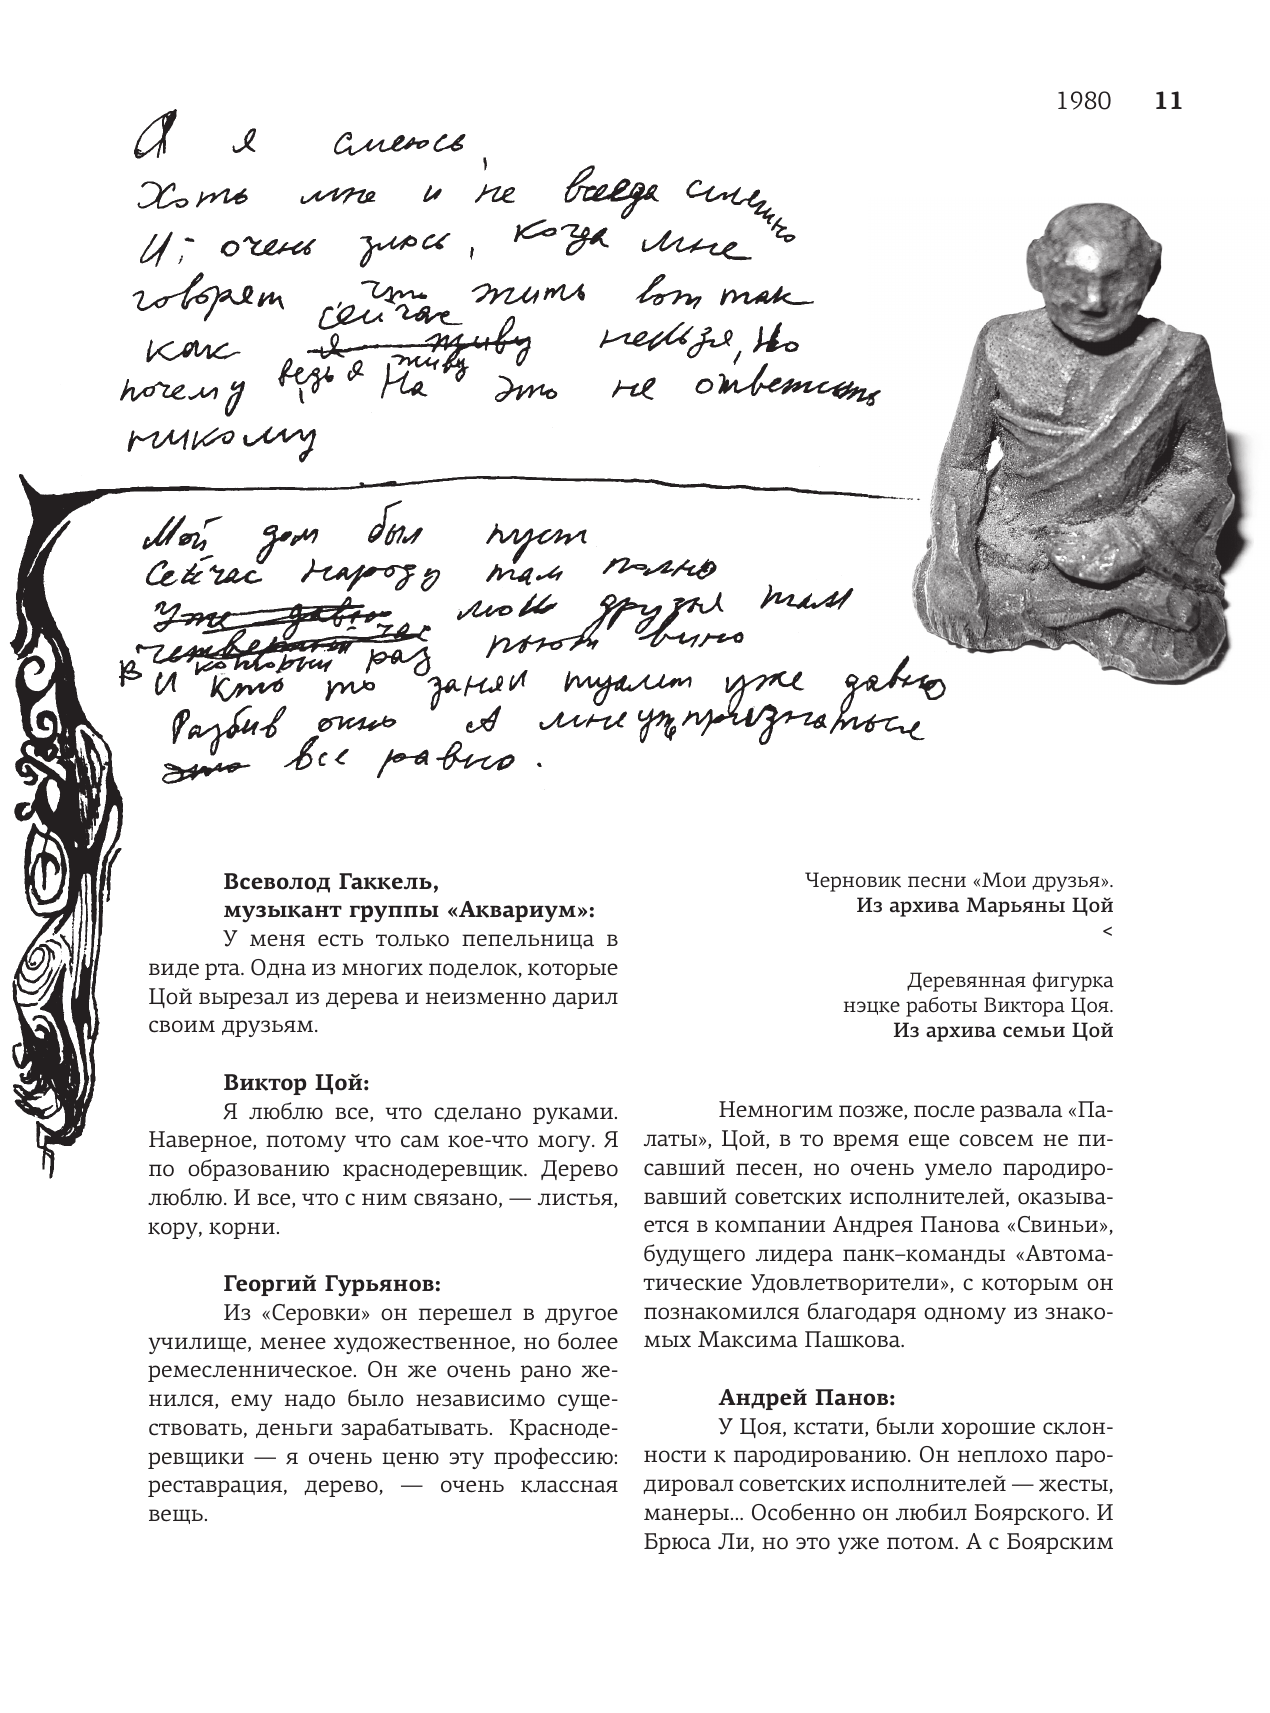 1980 11
А я смеюсь,
Хоть мне и не всегда смешно
И очень злюсь, когда мне
говорят что жить вот так
сейчас
как я живу нельзя, но
ведь я живу
почему, На это не ответить
никому
Мой дом был пуст
Сейчас народу там полно
Уже давно мои друзья там
четвертый час
В который раз пьют вино
И кто то занял туалет уже давно
Разбив окно А мне признаться
это все равно.
Всеволод Гаккель,
музыкант группы «Аквариум»:
У меня есть только пепельница в
виде рта. Одна из многих поделок, которые
Цой вырезал из дерева и неизменно дарил
своим друзьям.
Виктор Цой:
Я люблю все, что сделано руками.
Наверное, потому что сам кое-что могу. Я
по образованию краснодеревщик. Дерево
люблю. И все, что с ним связано, — листья,
кору, корни.
Георгий Гурьянов:
Из «Серовки» он перешел в другое
училище, менее художественное, но более
ремесленническое. Он же очень рано же-
нился, ему надо было независимо суще-
ствовать, деньги зарабатывать. Красноде-
ревщики — я очень ценю эту профессию:
реставрация, дерево, — очень классная
вещь.
Черновик песни «Мои друзья».
Из архива Марьяны Цой
<
Деревянная фигурка
нэцке работы Виктора Цоя.
Из архива семьи Цой
Немногим позже, после развала «Па-
латы», Цой, в то время еще совсем не пи-
савший песен, но очень умело пародиро-
вавший советских исполнителей, оказыва-
ется в компании Андрея Панова «Свиньи»,
будущего лидера панк–команды «Автома-
тические Удовлетворители», с которым он
познакомился благодаря одному из знако-
мых Максима Пашкова.
Андрей Панов:
У Цоя, кстати, были хорошие склон-
ности к пародированию. Он неплохо паро-
дировал советских исполнителей — жесты,
манеры... Особенно он любил Боярского. И
Брюса Ли, но это уже потом. А с Боярским